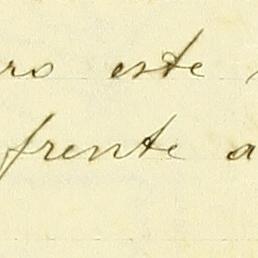 ro este
frente a